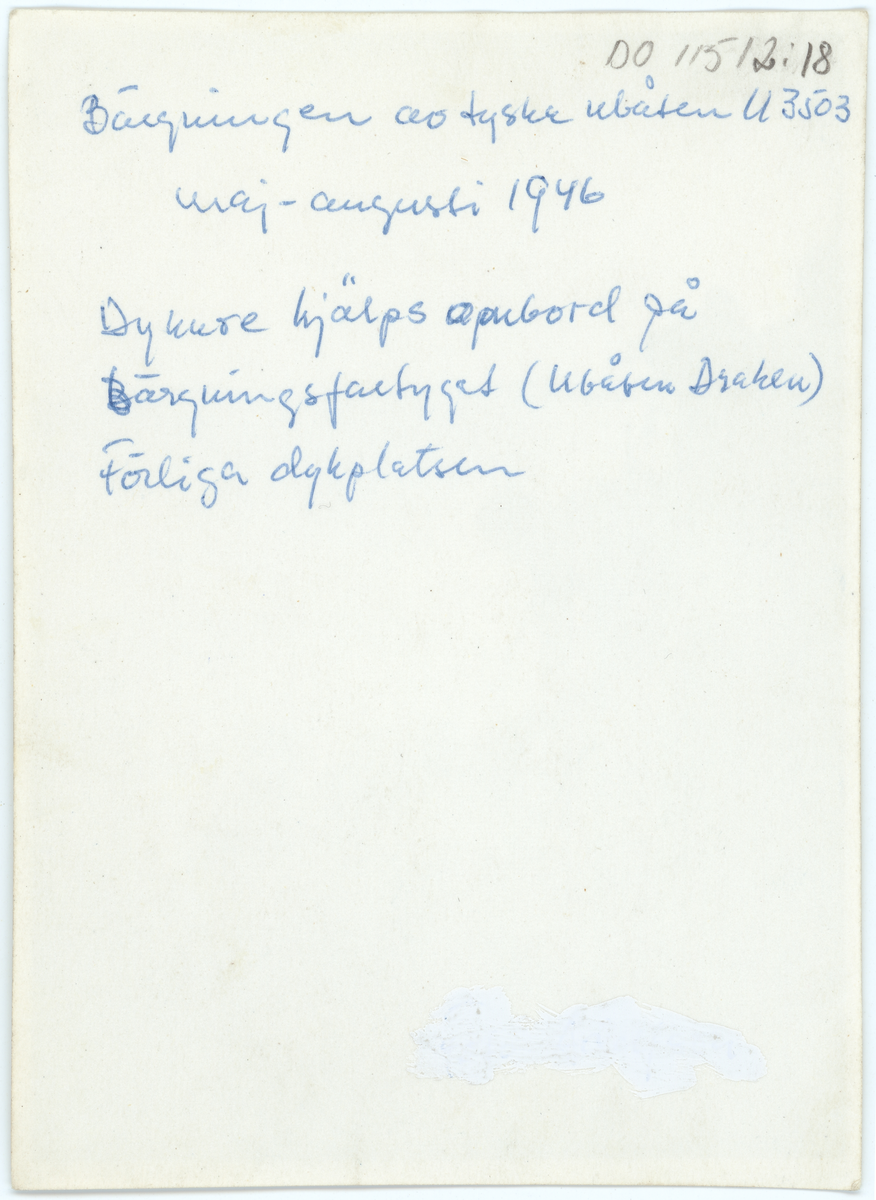 DO 115/2:18
Bärgningen av tyska ubåten U 3503
maj-augusti 1946
Dykare hjälps ombord på
Bärgningsfartyget (Ubåten Draken)
Förliga dykplatsen